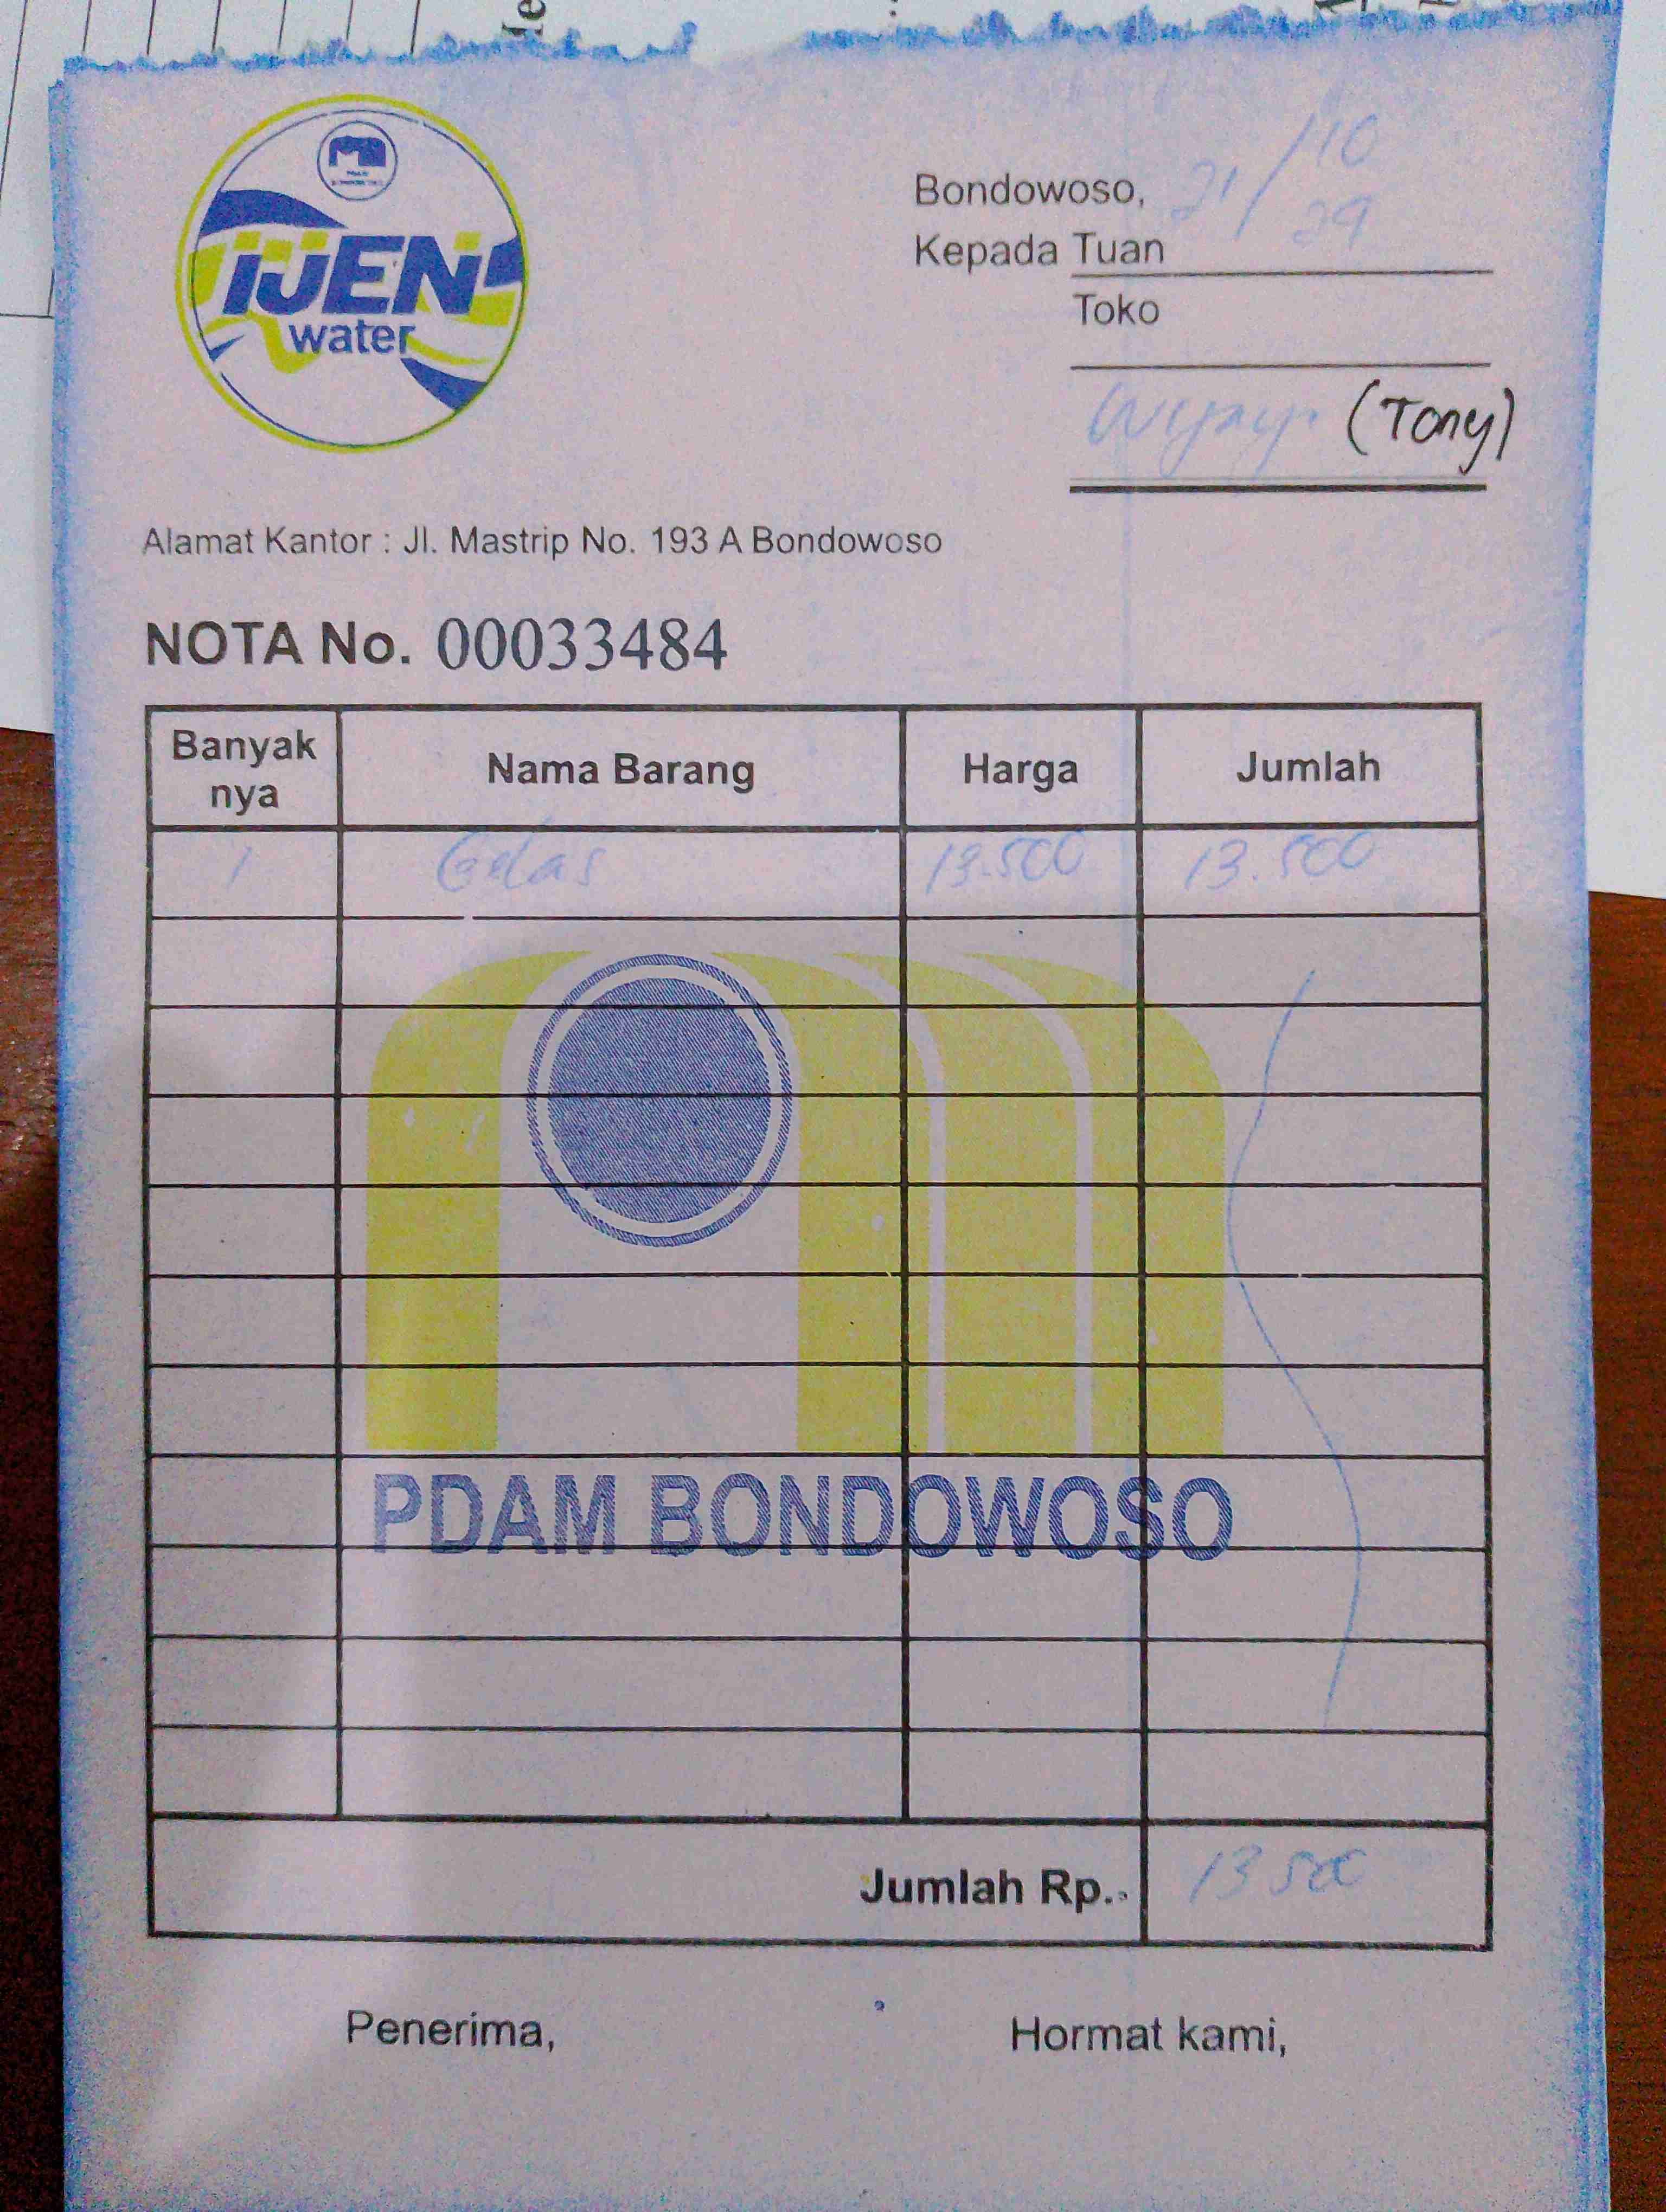 iJEN
water
Bondowoso, 21/10
Kepada Tuan
Toko
(Tony)
Alamat Kantor : Jl. Mastrip No. 193 A Bondowoso
NOTA No. 00033484
Banyak nya Nama Barang Harga Jumlah
1 Gelas 13.500 13.500
PDAM BONDOWOSO
Jumlah Rp. 13 500
Penerima, Hormat kami,